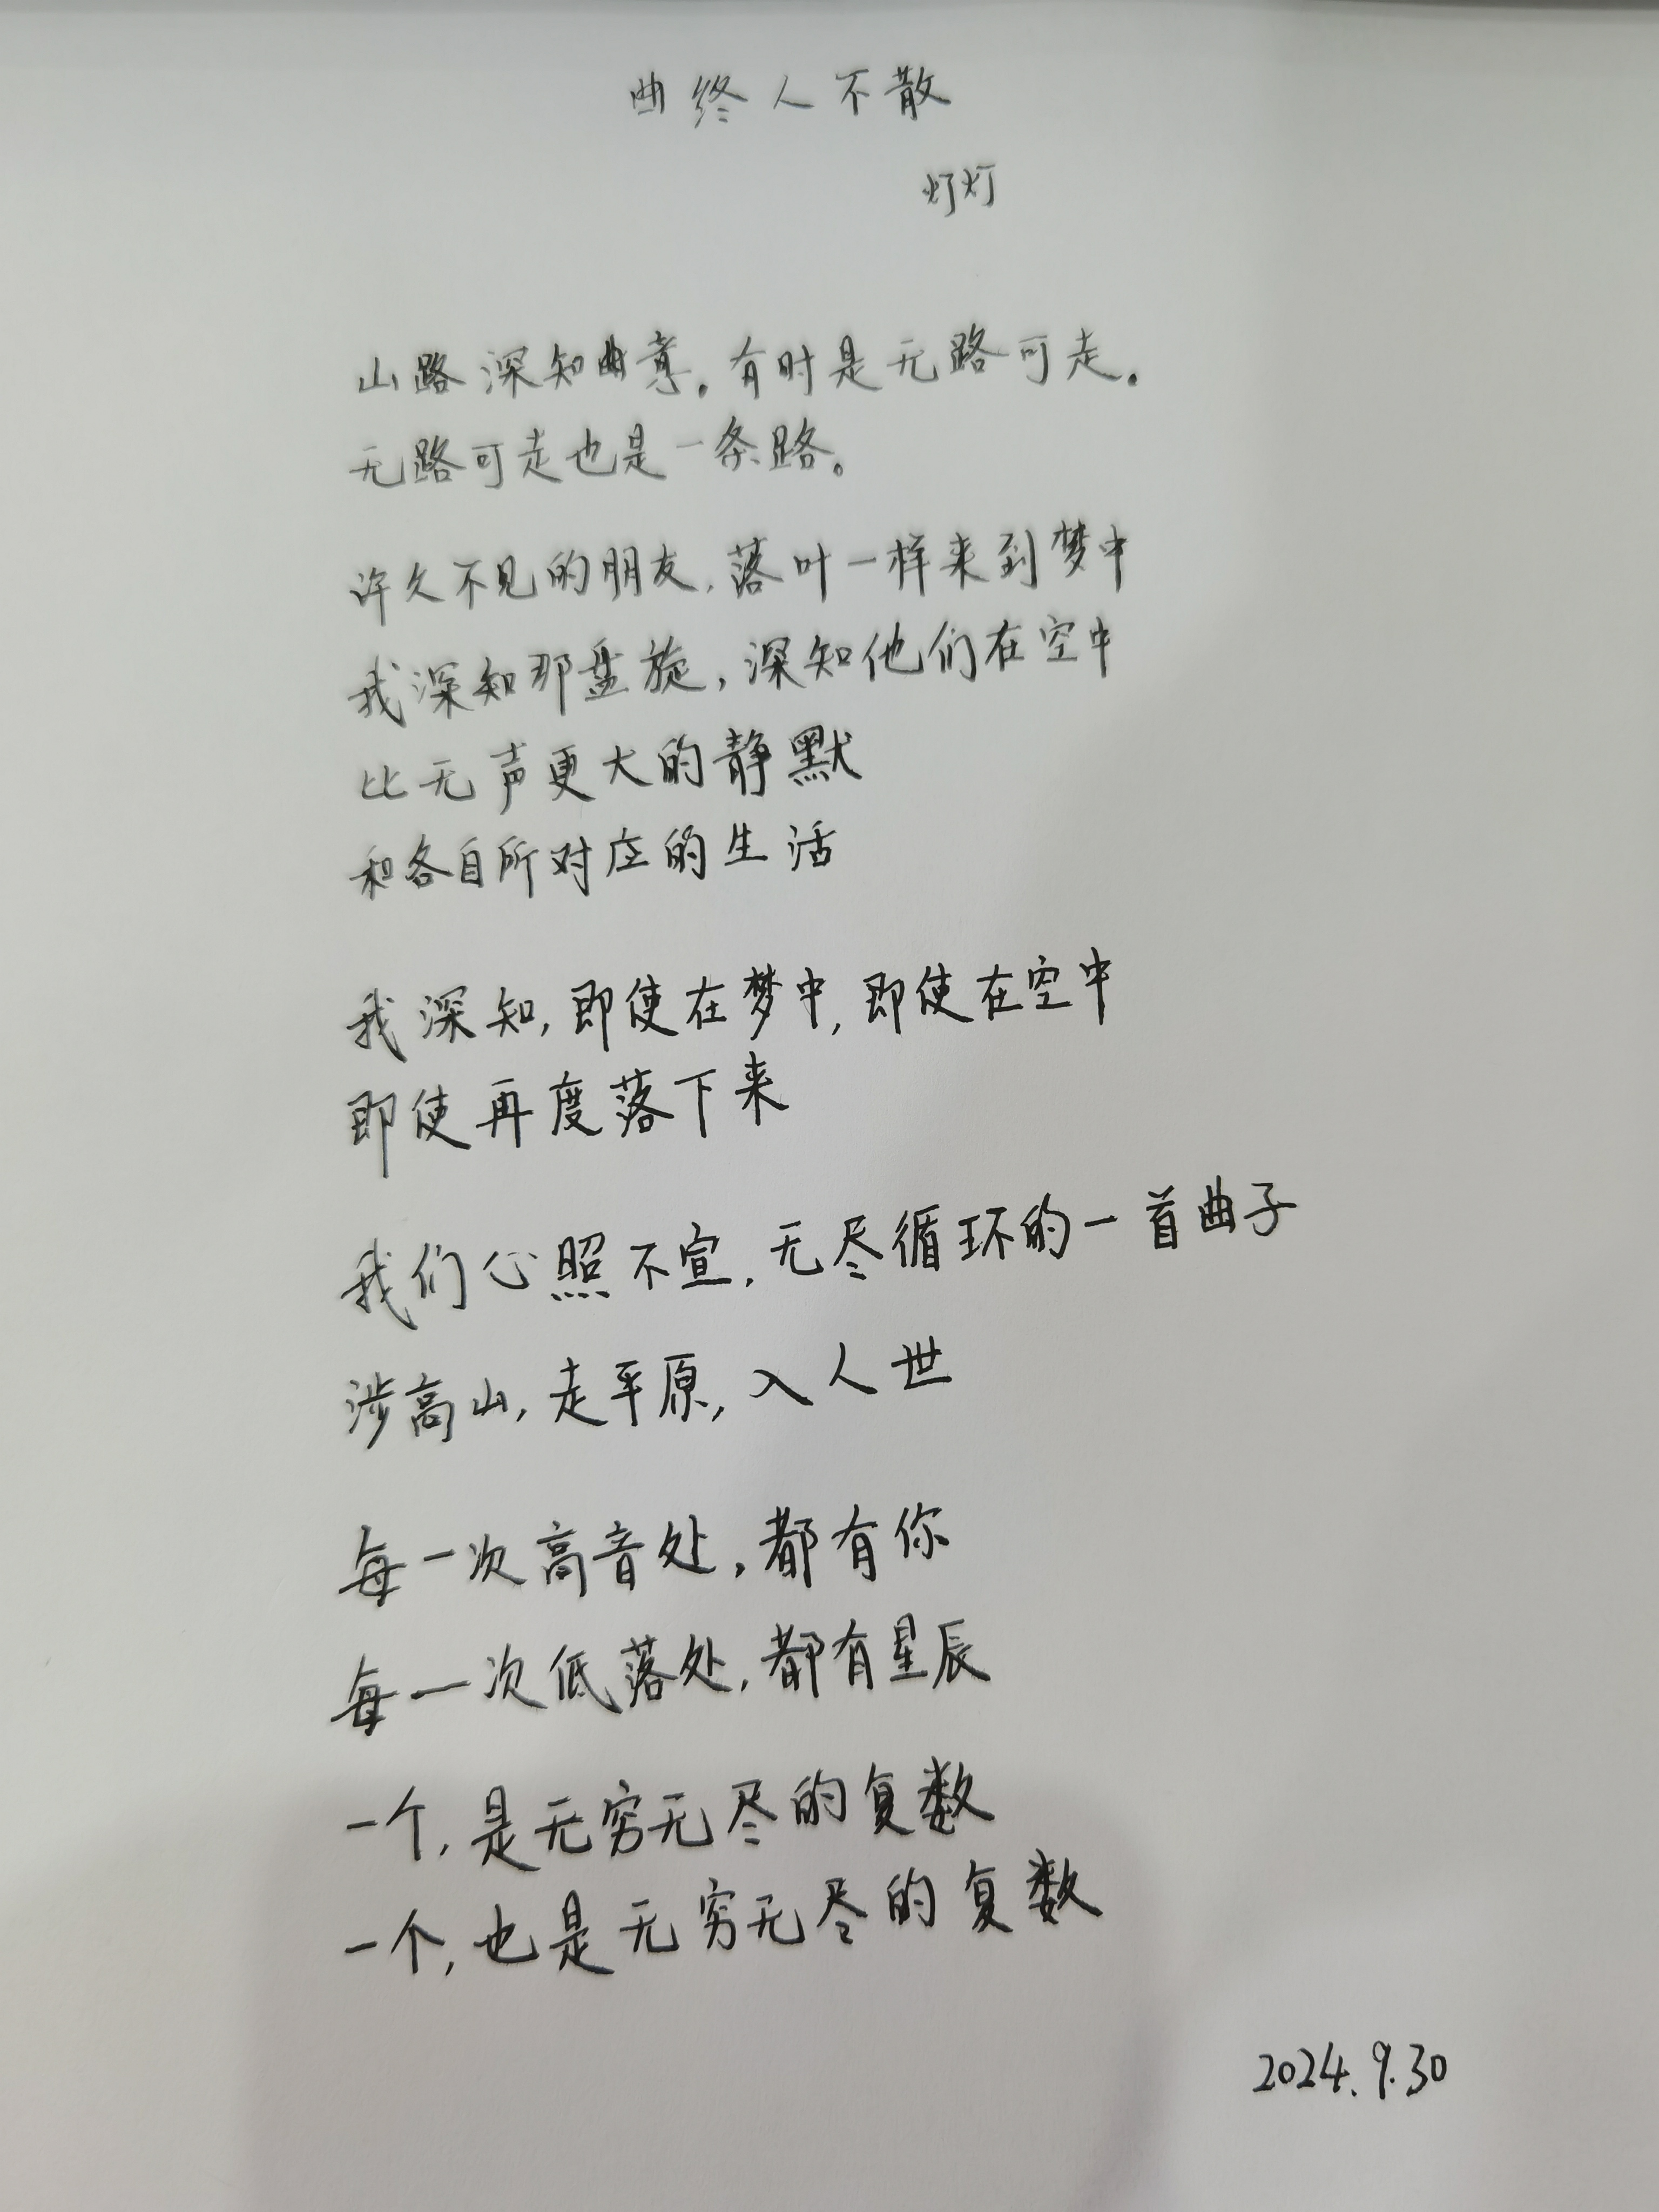 曲终人不散
灯灯
山路深知曲意。有时是无路可走。
无路可走也是一条路。
许久不见的朋友,落叶一样来到梦中
我深知那盘旋,深知他们在空中
比无声更大的静默
和各自所对应的生活
我深知,即使在梦中,即使在空中
即使再度落下来
我们心照不宣,无尽循环的一首曲子
涉高山,走平原,入人世
每一次高音处,都有你
每一次低落处,都有星辰
一个,是无穷无尽的复数
一个,也是无穷无尽的复数
2024.9.30